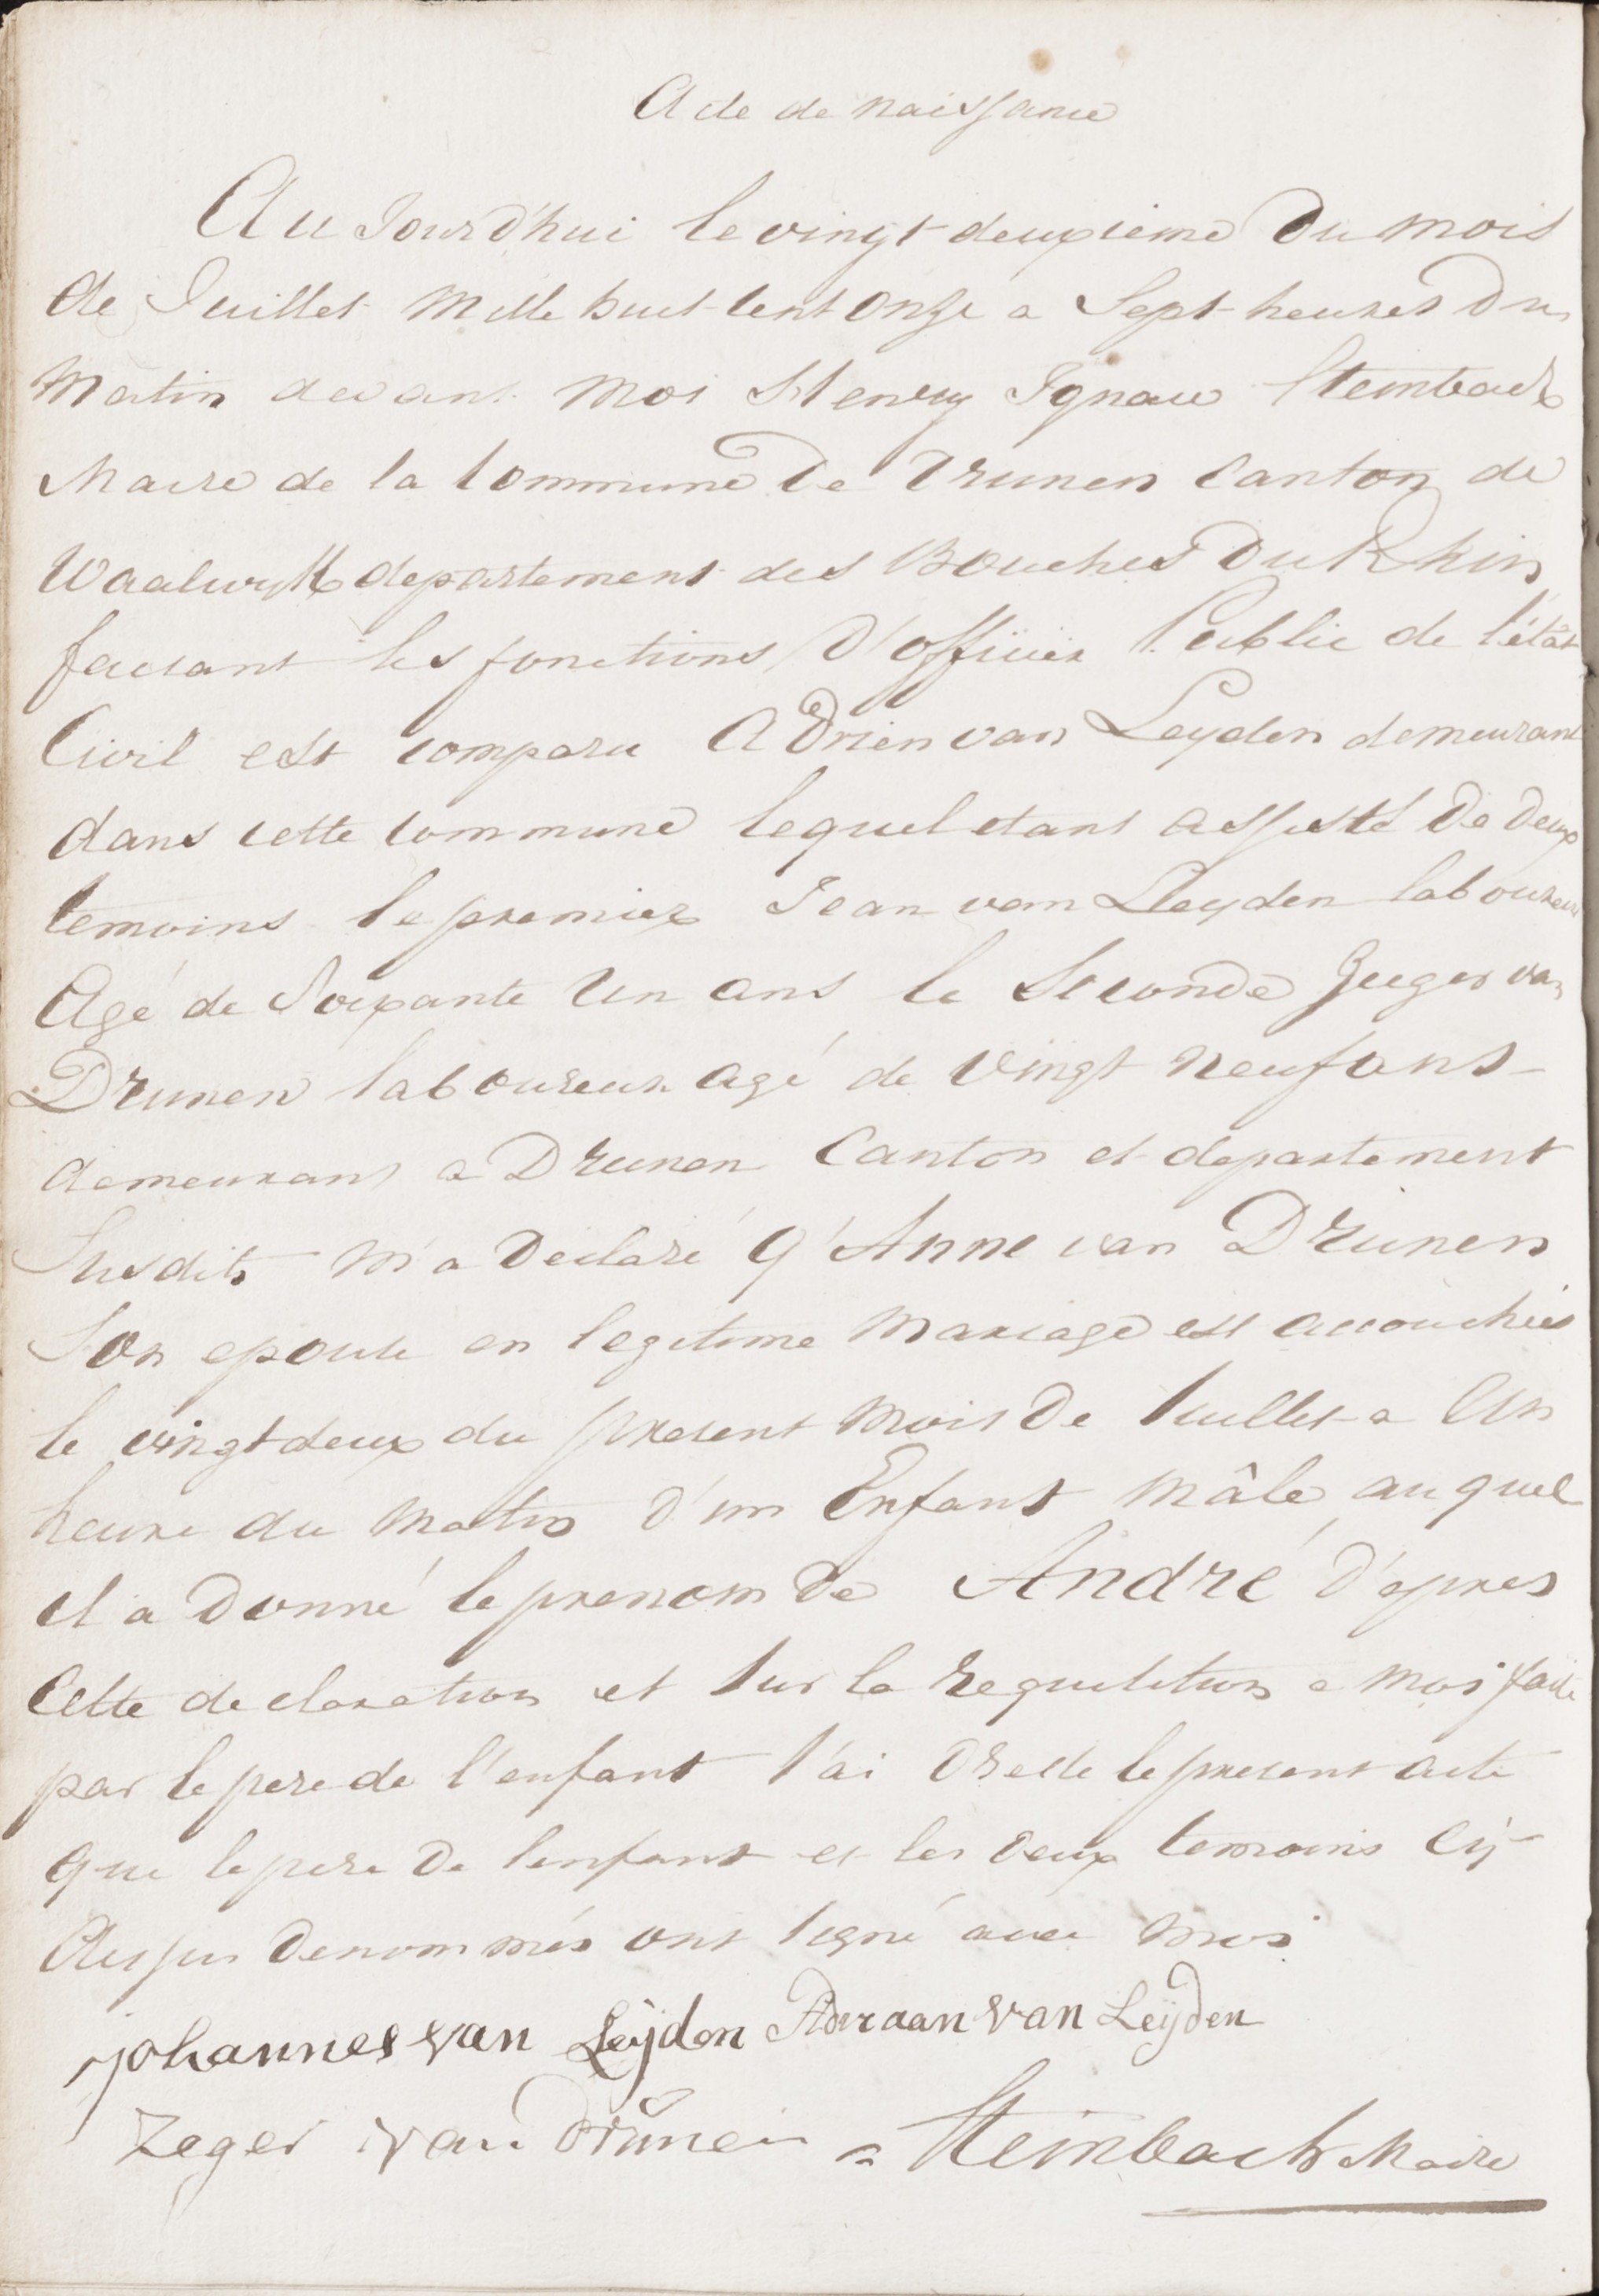 Acte de naissance
Au Jourd'hui le vingt deuxieme du mois
de Juillet mille huit cent onze a Sept heures du
Matin devant moi Henry Ignace Steinbach
Maire de la Commune de Drunen Canton de
Waalwyk departement des Bouches du Rhin
faisant les fonctions d'officier Public de l'état
Civil est comparu Adrien van Leyden demeurant
dans cette commune lequel etant assisté de deux
temoins le premier Jean van Leyden laboureur
Agé de Soixante un ans le Seconde Zeeger van
Drunen laboureur agé de vingt neuf ans
demeurant a Drunen Canton et departement
Susdits m'a declaré q'Anne van Drunen
Son epouse en legitime Mariage est accouchée
le vingt deux du present mois de Juillet a un
heure du matin d'un Enfant mâle auquel
il a donné le prenom de André d'apres
Cette declaration et sur la requisition a moi faite
par le pere de l'enfant J'ai dresse le present acte
que le pere de lenfant et les deux temoins cy
dessus denommés ont signé avec moi
Johannes van Leÿden Adriaan van Leÿden
Zeger van Drunen Steinbach Maire